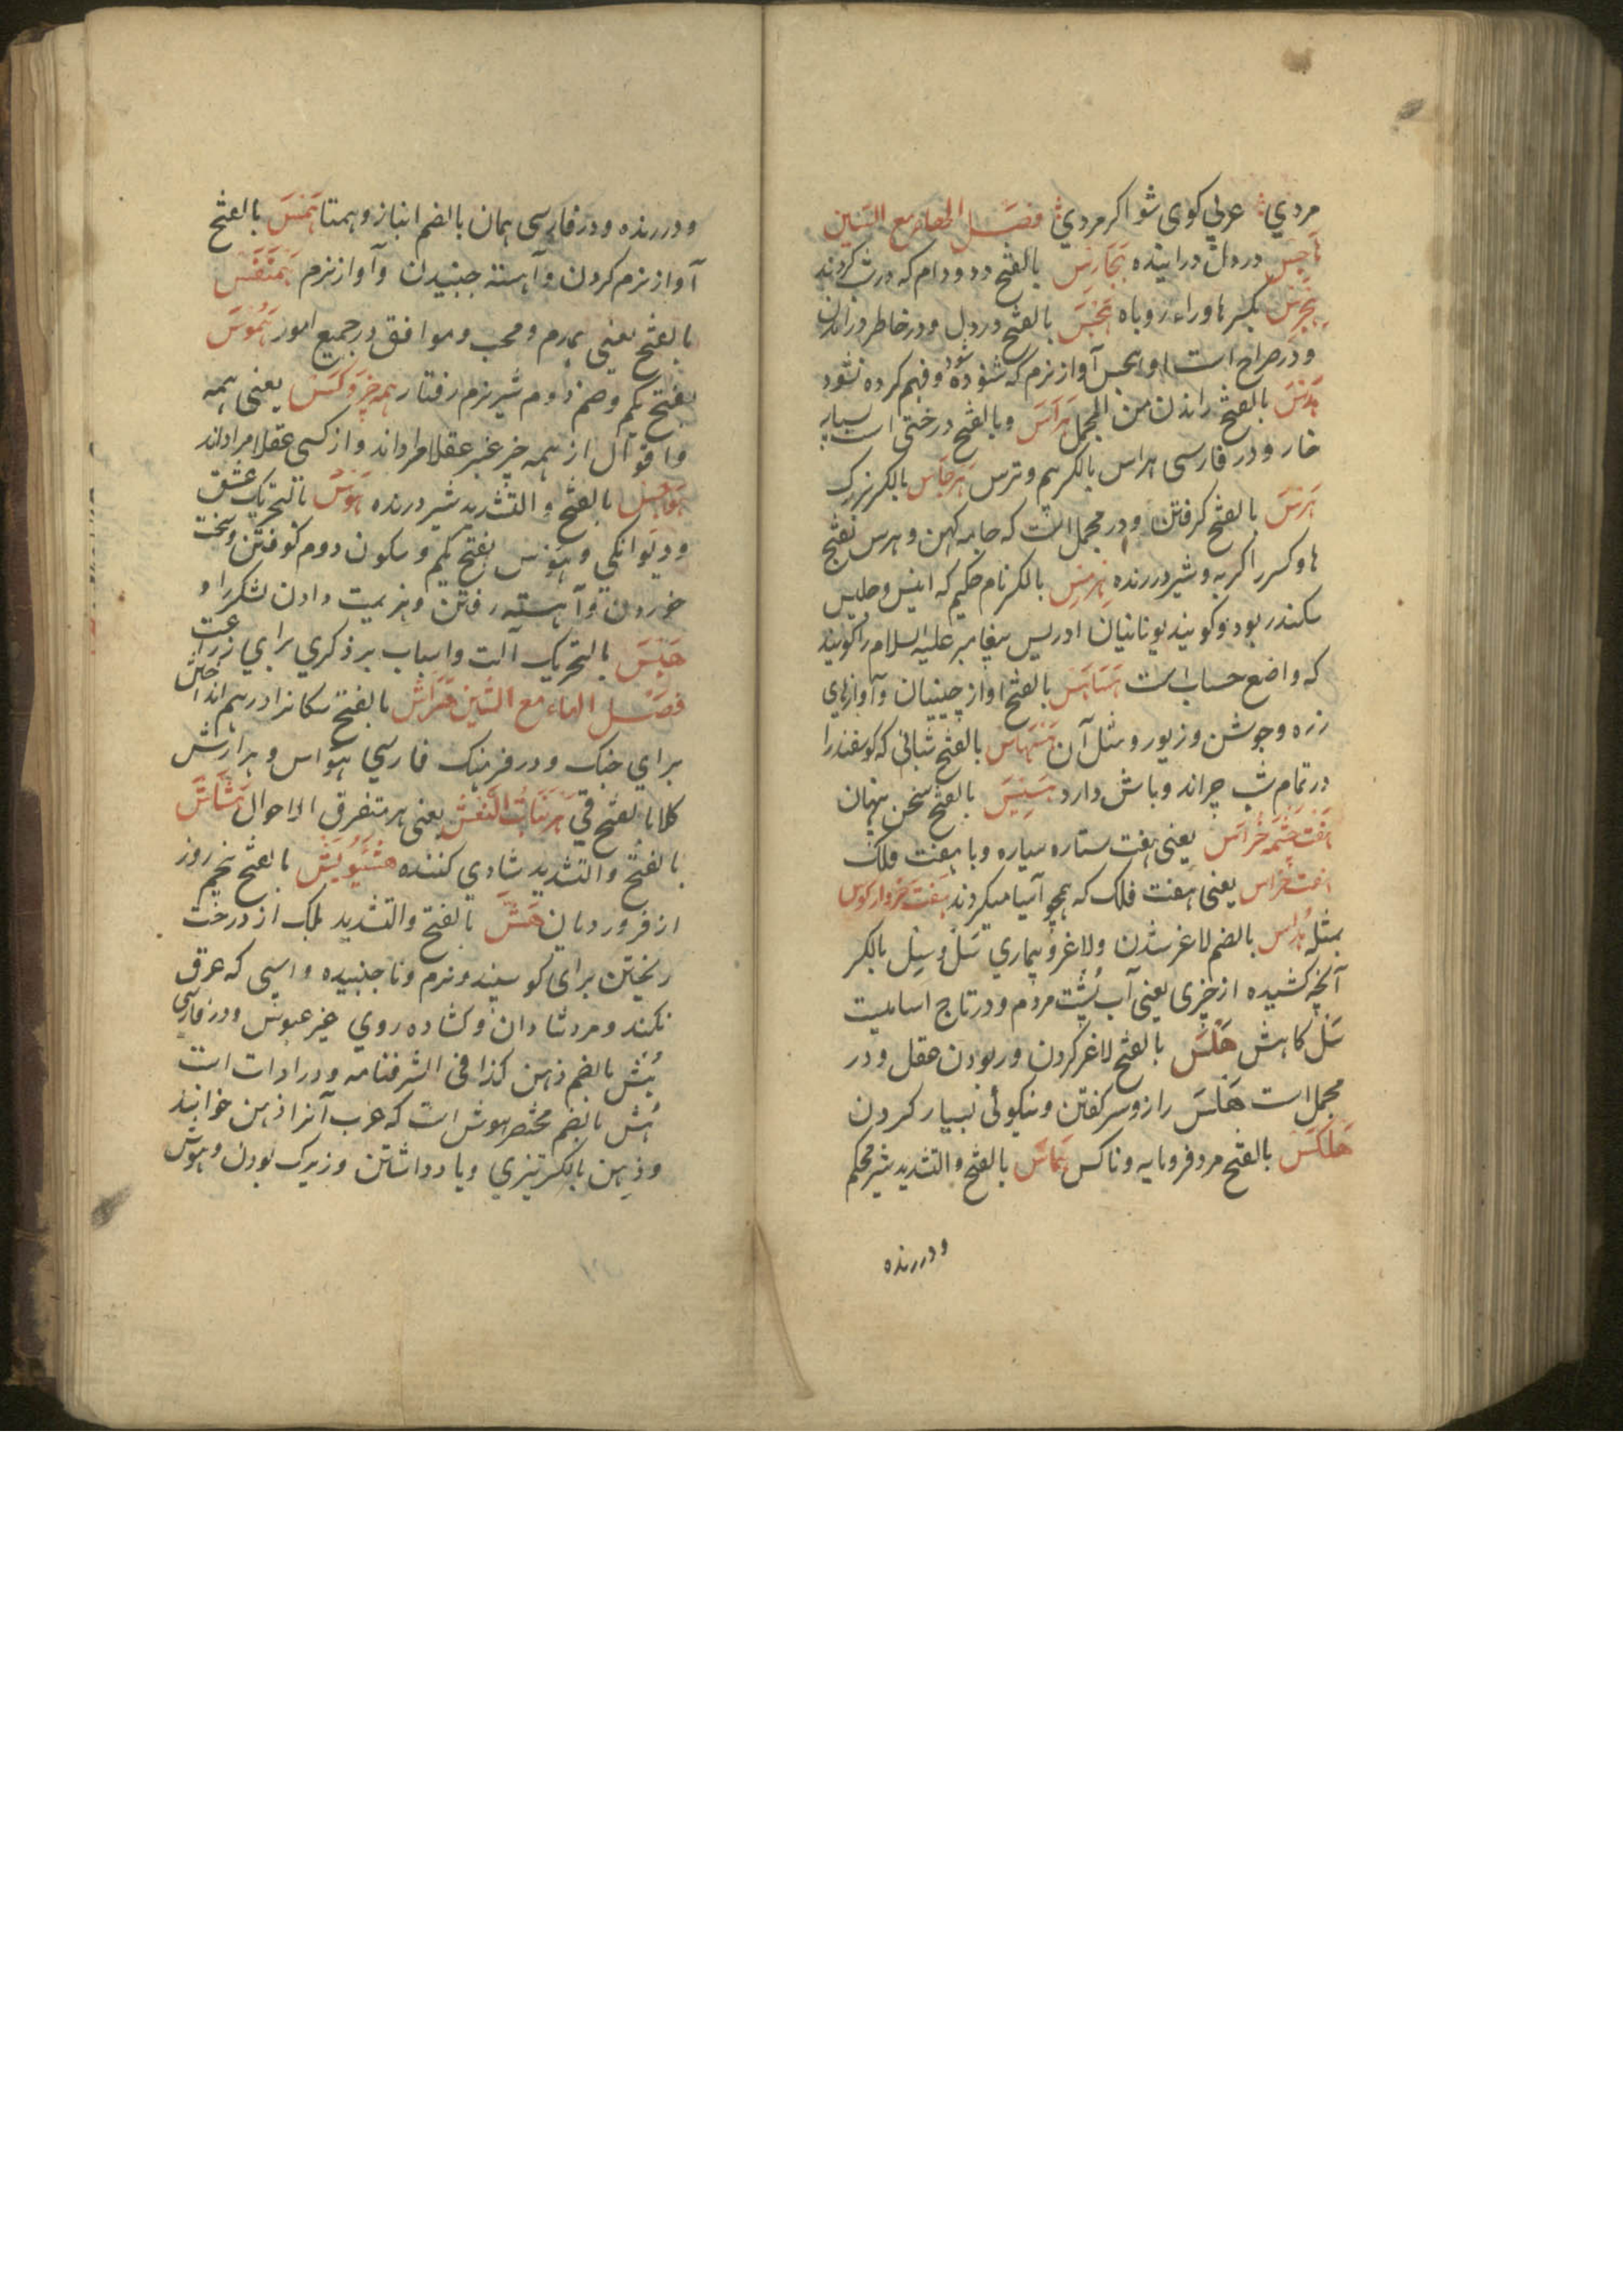 مردي عربي کوی شو اکر مردي فصل الهاء مع السین
هاجس در دل در اینده هجارس بالفتح دد و دام که در شب کردند
هجرس بکسر ها و راء روباه هجس بالفتح در دل و در خاطر در امدن
و در صراح است اوا هجس آواز نرم که شنوده شود و فهم کرده نشود
هدس بالفتح راندن من المجمل هراس وبالفتح درختی است بسیار
خار و در فارسی هراس بالکسر بیم و ترس هرجاس بالکسر بزرک
هرس بالفتح کرفتن و در مجمل است که جامه کهن و هرس بفتح
ها و کسر را کربه و شیر درنده هرمس بالکسر نام حکیم که انیس و جلیس
سکندر بود و کویند یونانیان ادریس پیغامبر علیه السلام را کویند
که واضع حساب است هساهس بالفتح اواز جنبیدن و آوازهای
زره و جوشن و زیور و مثل آن هسهاس بالفتح شبانی که کوسفند را
در تمام شب چراند و باش دارد هسیس بالفتح سخن پنهان
هفت چشمه خراس یعنی هفت ستاره سیاره و یا هفت فلک
هفت خراس یعنی هفت فلک که همچو آسیا میکردند هفت خروار کوس
مثله هلاس بالضم لاغر شدن و لاغر و بیماری سل و سل بالکسر
آنچه کشیده از چیزی یعنی آب پشت مردم و در تاج اسامیست
سل کاهش هلس بالفتح لاغر کردن و ربودن عقل و در
مجمل است هلاس راز و سر کفتن و نیکوئی بسیار کردن
هلکس بالفتح مرد فرومایه و ناکس هماس بالفتح والتشدید شیر محکم
و درنده
و درنده و در فارسی همان بالضم انباز و همتا همس بالفتح
آواز نرم کردن و آهسته جنبیدن و آواز نرم همنفس
بالفتح یعنی همدم و محب و موافق در جمیع امور هموس
بفتح یکم و ضم دوم شیر نرم رفتار همه چیز و کس یعنی همه
و اقوال از همه چیز غیر عقلا مراد اند و از کسی عقلا مراد اند
هواس بالفتح والتشدید شیر درنده هوس بالتحریک عشق
و دیوانکی و هوس بفتح یکم و سکون دوم کوفتن و سخت
خوردن و آهسته رفتن و هزیمت دادن لشکر را و
هیس بالتحریک آلت و اسباب برذکری برای زراعت
فصل الهاء مع الشین هراش بالفتح سکانرا در هم انداختن
برای جنک و در فرهنک فارسی هواس و هراش
کلاهما بالفتح قی هر بنات النعش یعنی هر متفرق الاحوال هشاش
بالفتح والتشدید شادی کننده هشیویش بالفتح پنجم روز
از فروردیان هش بالفتح والتشدید بلک از درخت
ریختن برای کوسپند و نرم و ناجنبیده و اسپی که عرق
نکند و مرد شادان و کشاده روی غیر عبوس و در فارسی
هش بالضم ذهن کذا فی الشرفنامه و در ادات است
هش بالضم مختصر هوش است که عرب آنرا ذهن خوانند
و ذهن بالکسر تیزی و یاد داشتن و زیرک بودن و هوش